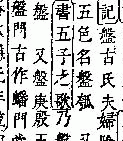 記盤古氏夫婦
五色名盤瓠
書五子之歌乃
盤 又盤庚殷
盤門古作蟠門